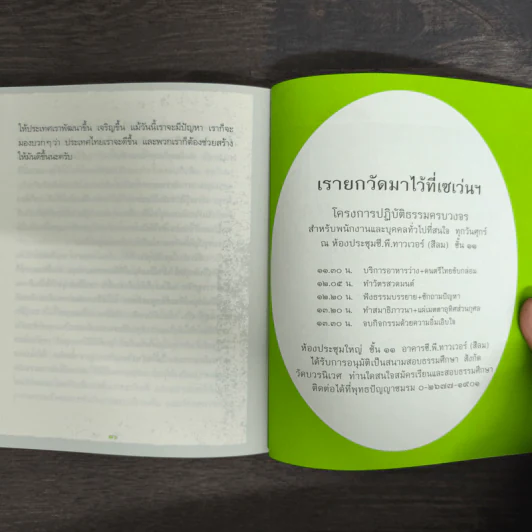 ให้ประเทศเราพัฒนาขึ้น เจริญขึ้น แม้วันนี้เราจะมีปัญหา เราก็จะ
มองบวกๆว่า ประเทศไทยเราจะดีขึ้น และพวกเราก็ต้องช่วยสร้าง
ให้มันดีขึ้นนะครับ
เรายกวัดมาไว้ที่เซเว่นฯ
โครงการปฏิบัติธรรมครบวงจร
สำหรับพนักงานและบุคคลทั่วไปที่สนใจ ทุกวันศุกร์
ณ ห้องประชุมซี.พี.ทาวเวอร์ (สีลม) ชั้น ๑๑
๑๑.๓๐ น. บริการอาหารว่าง+ดนตรีไทยขับกล่อม
๑๒.๐๕ น. ทำวัตรสวดมนต์
๑๒.๒๐ น. ฟังธรรมบรรยาย+ซักถามปัญหา
๑๓.๒๐ น. ทำสมาธิภาวนา+แผ่เมตตาอุทิศส่วนกุศล
๑๓.๓๐ น. จบกิจกรรมด้วยความอิ่มเอิบใจ
ห้องประชุมใหญ่ ชั้น ๑๑ อาคารซี.พี.ทาวเวอร์ (สีลม)
ได้รับการอนุมัติเป็นสนามสอบธรรมศึกษา สังกัด
วัดบวรนิเวศ ท่านใดสนใจสมัครเรียนและสอบธรรมศึกษา
ติดต่อได้ที่พุทธปัญญาชมรม ๐-๒๖๗๗-๑๔๐๑